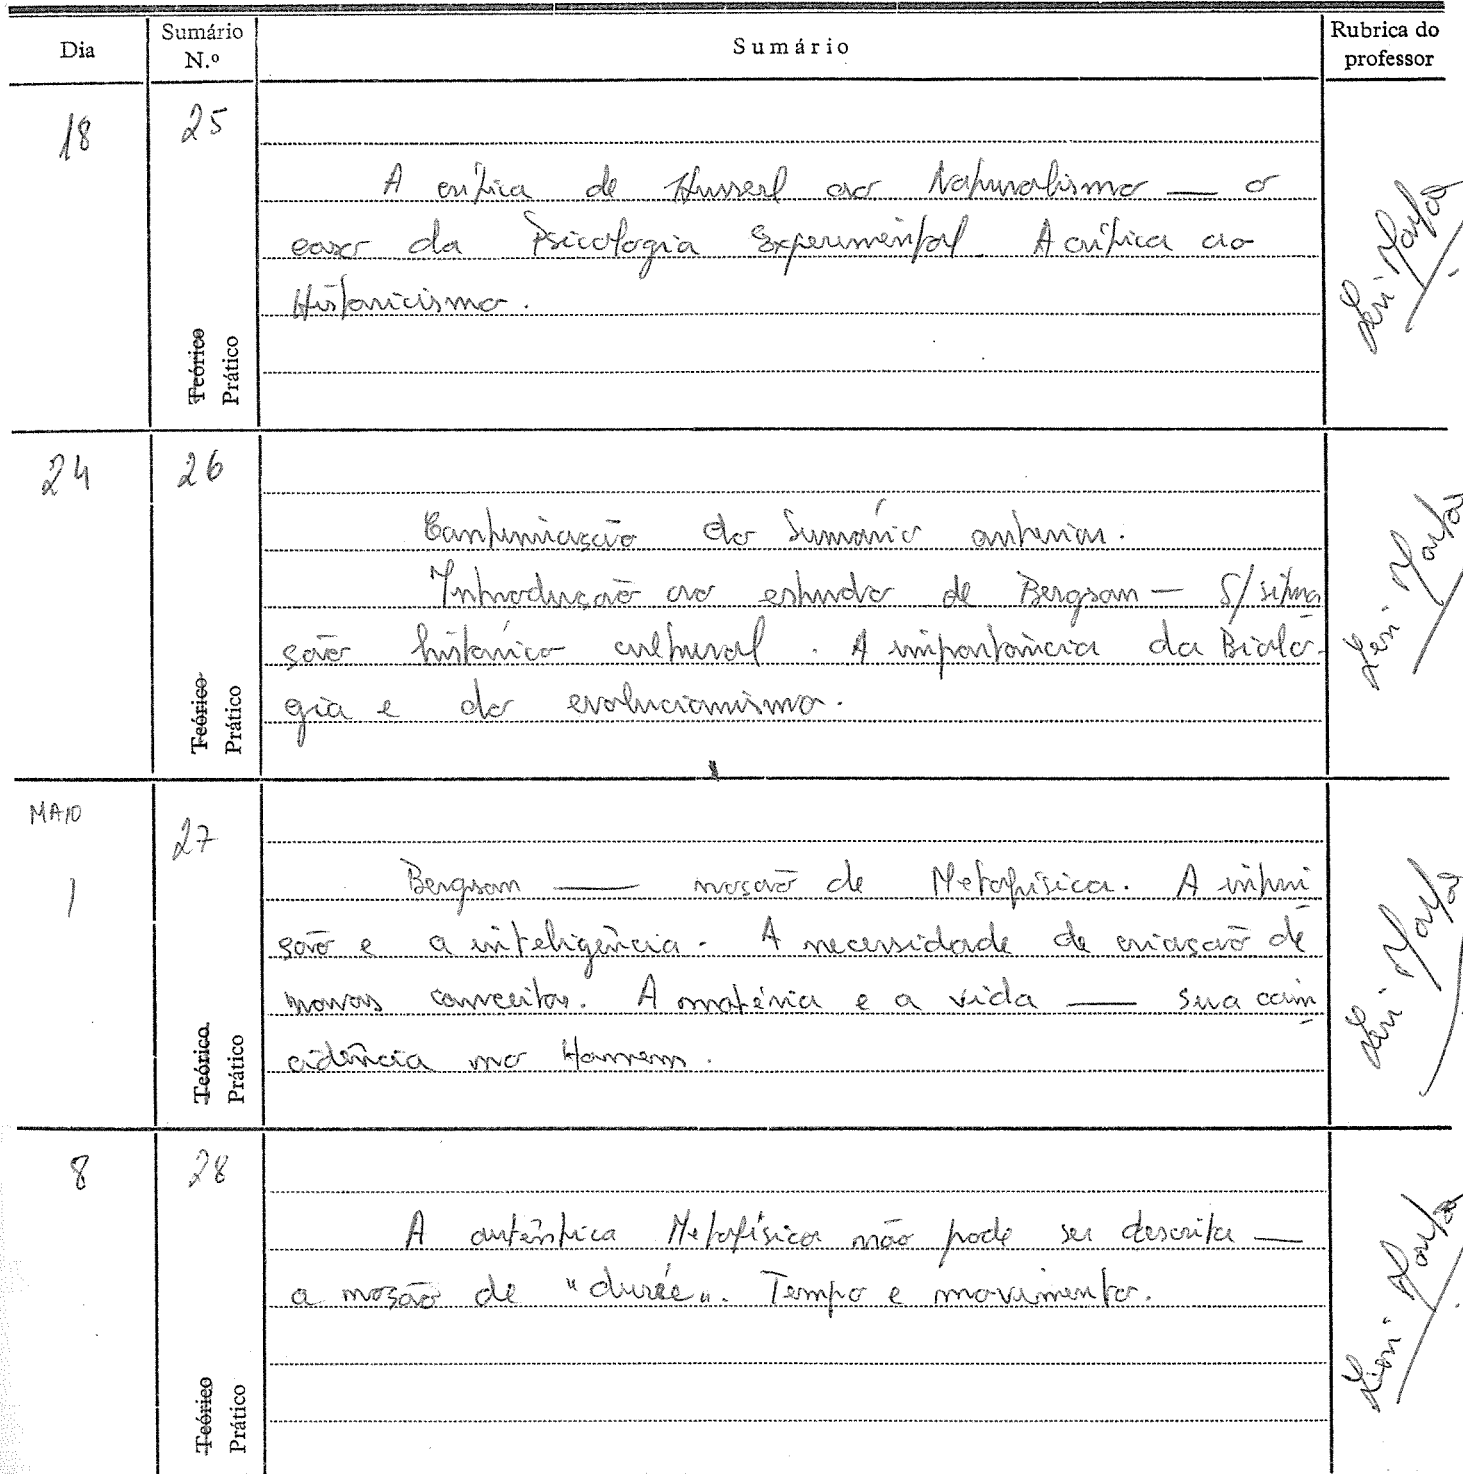 Dia Sumário N.º Sumário Rubrica do professor
18 25
A crítica de Husserl ao Naturalismo — o
caso da Psicologia Experimental. A crítica ao
Historicismo.
Teórico
Prático
24 26
Continuação do Sumário anterior.
Introdução ao estudo de Bergson — S/ situa
ção histórico cultural. A importância da Bioló-
gia e do evolucionismo.
Teórico
Prático
MAIO
1 27
Bergson — noção de Metafísica. A intui
ção e a inteligência. A necessidade de criação de
novos conceitos. A matéria e a vida — sua coin
cidência no Homem.
Teórico
Prático
8 28
A autêntica Metafísica não pode ser descrita —
a noção de "durée". Tempo e movimento.
Teórico
Prático